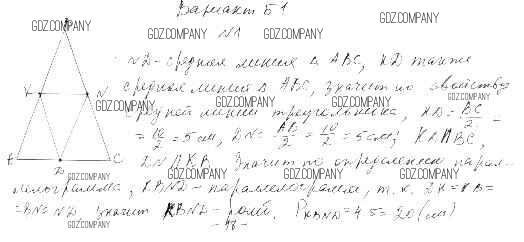 Вариант Б1
GDZ.COMPANY
GDZ.COMPANY
GDZ.COMPANY
N1
GDZ.COMPANY
B
ND - средняя линия Δ ABC, KD также
K N
средняя линия Δ ABC, значит по свойству
GDZ.COMPANY
GDZ.COMPANY
GDZ.COMPANY
GDZ.COMPANY
средней линии треугольника, KD = BC/2 =
= 10/2 = 5 см, DN = AB/2 = 10/2 = 5 см; KD ∥ BC,
D C
DN ∥ KB. Значит по определению парал-
GDZ.COMPANY
GDZ.COMPANY
GDZ.COMPANY
лелограмма, KBND - параллелограмм, т.к. DK = KB =
= BN = ND значит KBND - ромб. P KBND = 4·5 = 20 (см)
GDZ.COMPANY
GDZ.COMPANY
- 48 -